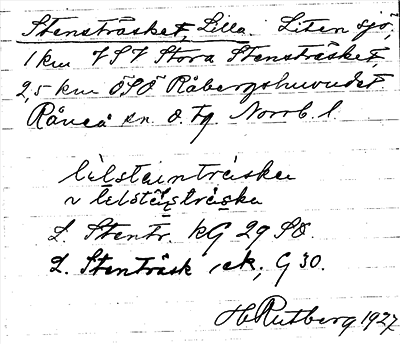 Stensträsket, Lilla. Liten sjö,
1 km VSV Stora Stensträsket,
2,5 km ÖSÖ Råbergshuvudet.
Råneå sn. o. tg. Norrb. l.
lilsteinträska
~ lilstäisträska
L. Stentr. kG 29 SO.
L. Stenträsk, ek, G 30.
H Rutberg 1927